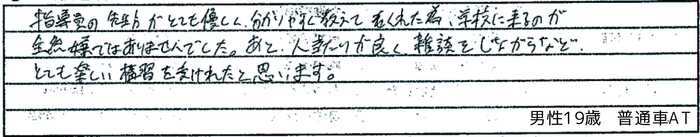 指導員の先生方がとても優しく、分かりやすく教えて下くれた為、学校に来るのが
全然嫌ではありませんでした。あと、人当たりが良く雑談をしながらなど、
とても楽しい講習を受けれたと思います。
男性19歳　普通車AT